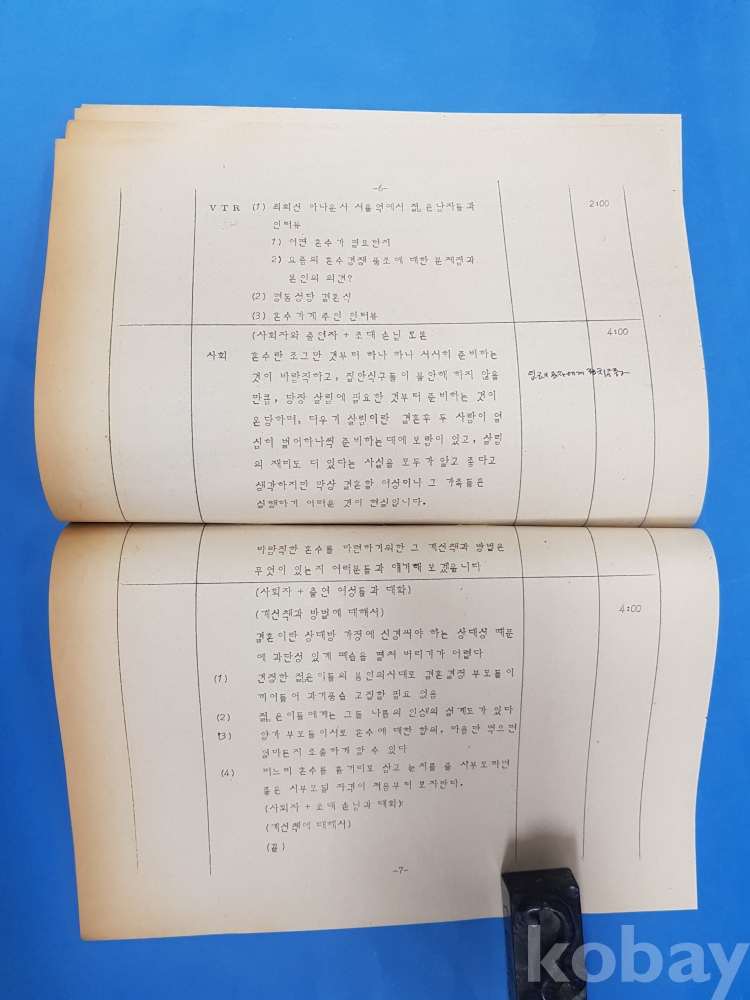 -6-
V T R (1) 최희선 아나운서 서울역에서 젊은남자들과 2:00
인터뷰
1) 어떤 혼수가 필요한지
2) 요즘의 혼수경쟁 풍조에 대한 문제점과
본인의 의견?
(2) 명동성당 결혼식
(3) 혼수가게주인 인터뷰
(사회자와 출연자 + 초대 손님 토론 4:00
사회 혼수란 조그만 것부터 하나 하나 서서히 준비하는
것이 바람직하고, 집안식구들이 불안해 하지 않을
만큼, 당장 살림에 필요한 것부터 준비하는 것이
온당하며, 더우기 살림이란 결혼후 두 사람이 열
심히 벌어하나씩 준비하는데에 보람이 있고, 살림
의 재미도 더 있다는 사실을 모두가 알고 좋다고
생각하지만 막상 결혼할 여성이나 그 가족들은
실행하기 어려운 것이 현실입니다.
바람직한 혼수를 마련하기위한 그 개선책과 방법은
무엇이 있는지 여러분들과 얘기해 보겠읍니다
(사회자 + 출연 여성들과 대화)
(개선책과 방법에 대해서) 4:00
결혼이란 상대방 가정에 신경써야 하는 상대성 때문
에 과단성 있게 폐습을 떨쳐 버리기가 어렵다
(1) 건전한 젊은이들의 본인의사대로 결혼결정 부모들이
끼어들어 과거풍습 고집할 필요 없음
(2) 젊은이들에게는 그들 나름의 인생의 설계도가 있다
(3) 양가 부모들이서로 혼수에 대한 합의, 마음만 먹으면
얼마든지 조촐하게 할 수 있다
(4) 며느리 혼수를 흉거리로 삼고 눈치를 줄 시부모라면
좋은 시부모될 자격이 처음부터 모자란다.
(사회자 + 초대 손님과 대화)
(개선책에 대해서)
(끝)
-7-
kobay